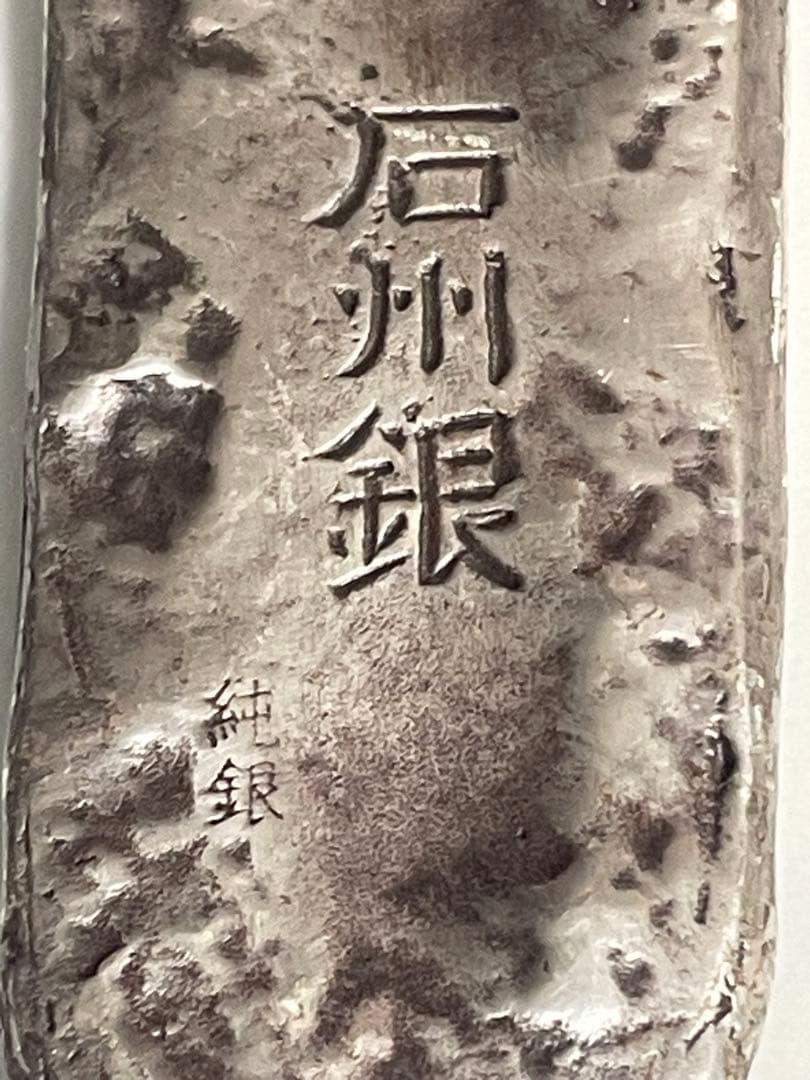 石州銀
純銀